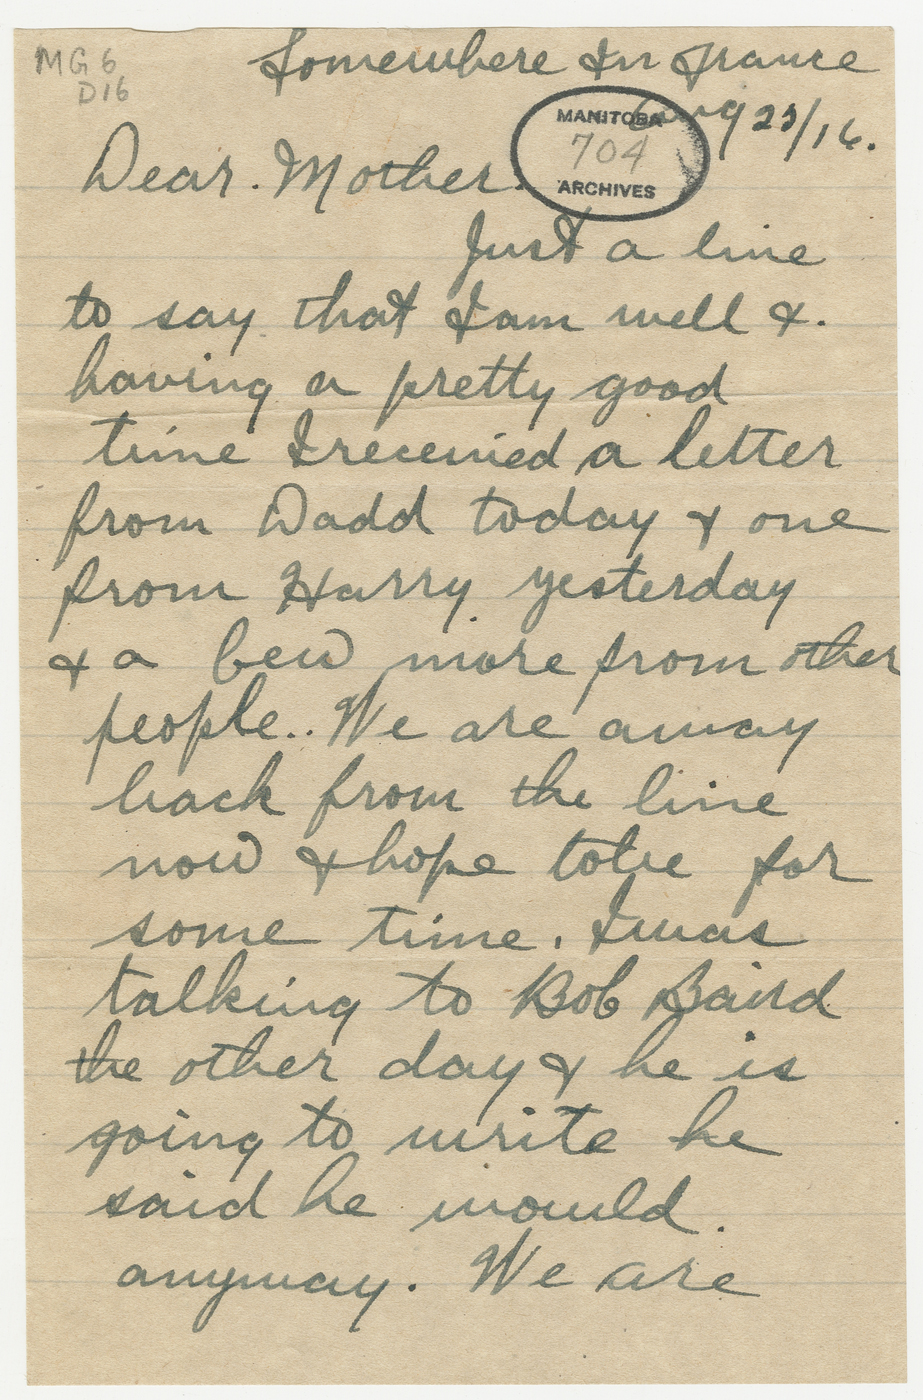 MG 6
D16
Somewhere In France
Aug 23/16.
MANITOBA
704
ARCHIVES
Dear. Mother.
Just a line
to say that I am well &.
having a pretty good
time I received a letter
from Dadd today & one
from Harry yesterday
& a few more from other
people.. We are away
back from the line
now & hope to be for
some time. I was
talking to Bob Baird
the other day & he is
going to write he
said he would.
anyway. We are